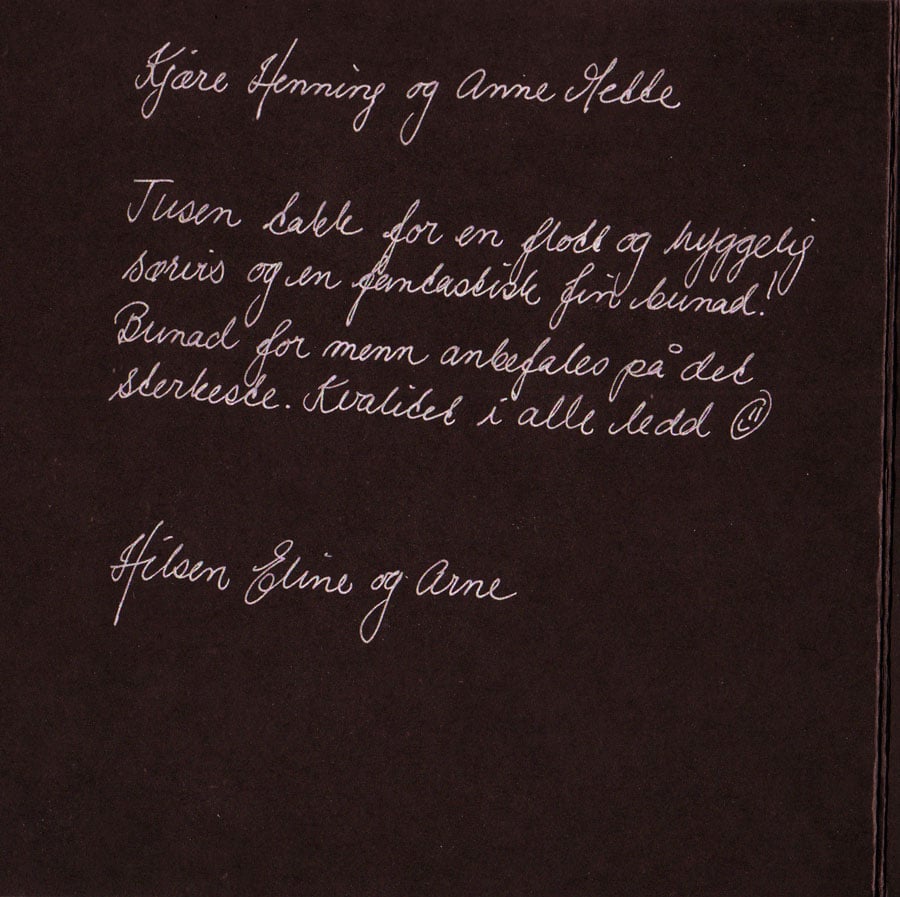 Kjære Henning og Anne Mette
Tusen takk for en flott og hyggelig
særvis og en fantastisk fin bunad!
Bunad for menn anbefales på det
sterkeste. Kvalitet i alle ledd
Hilsen Eline og Arne